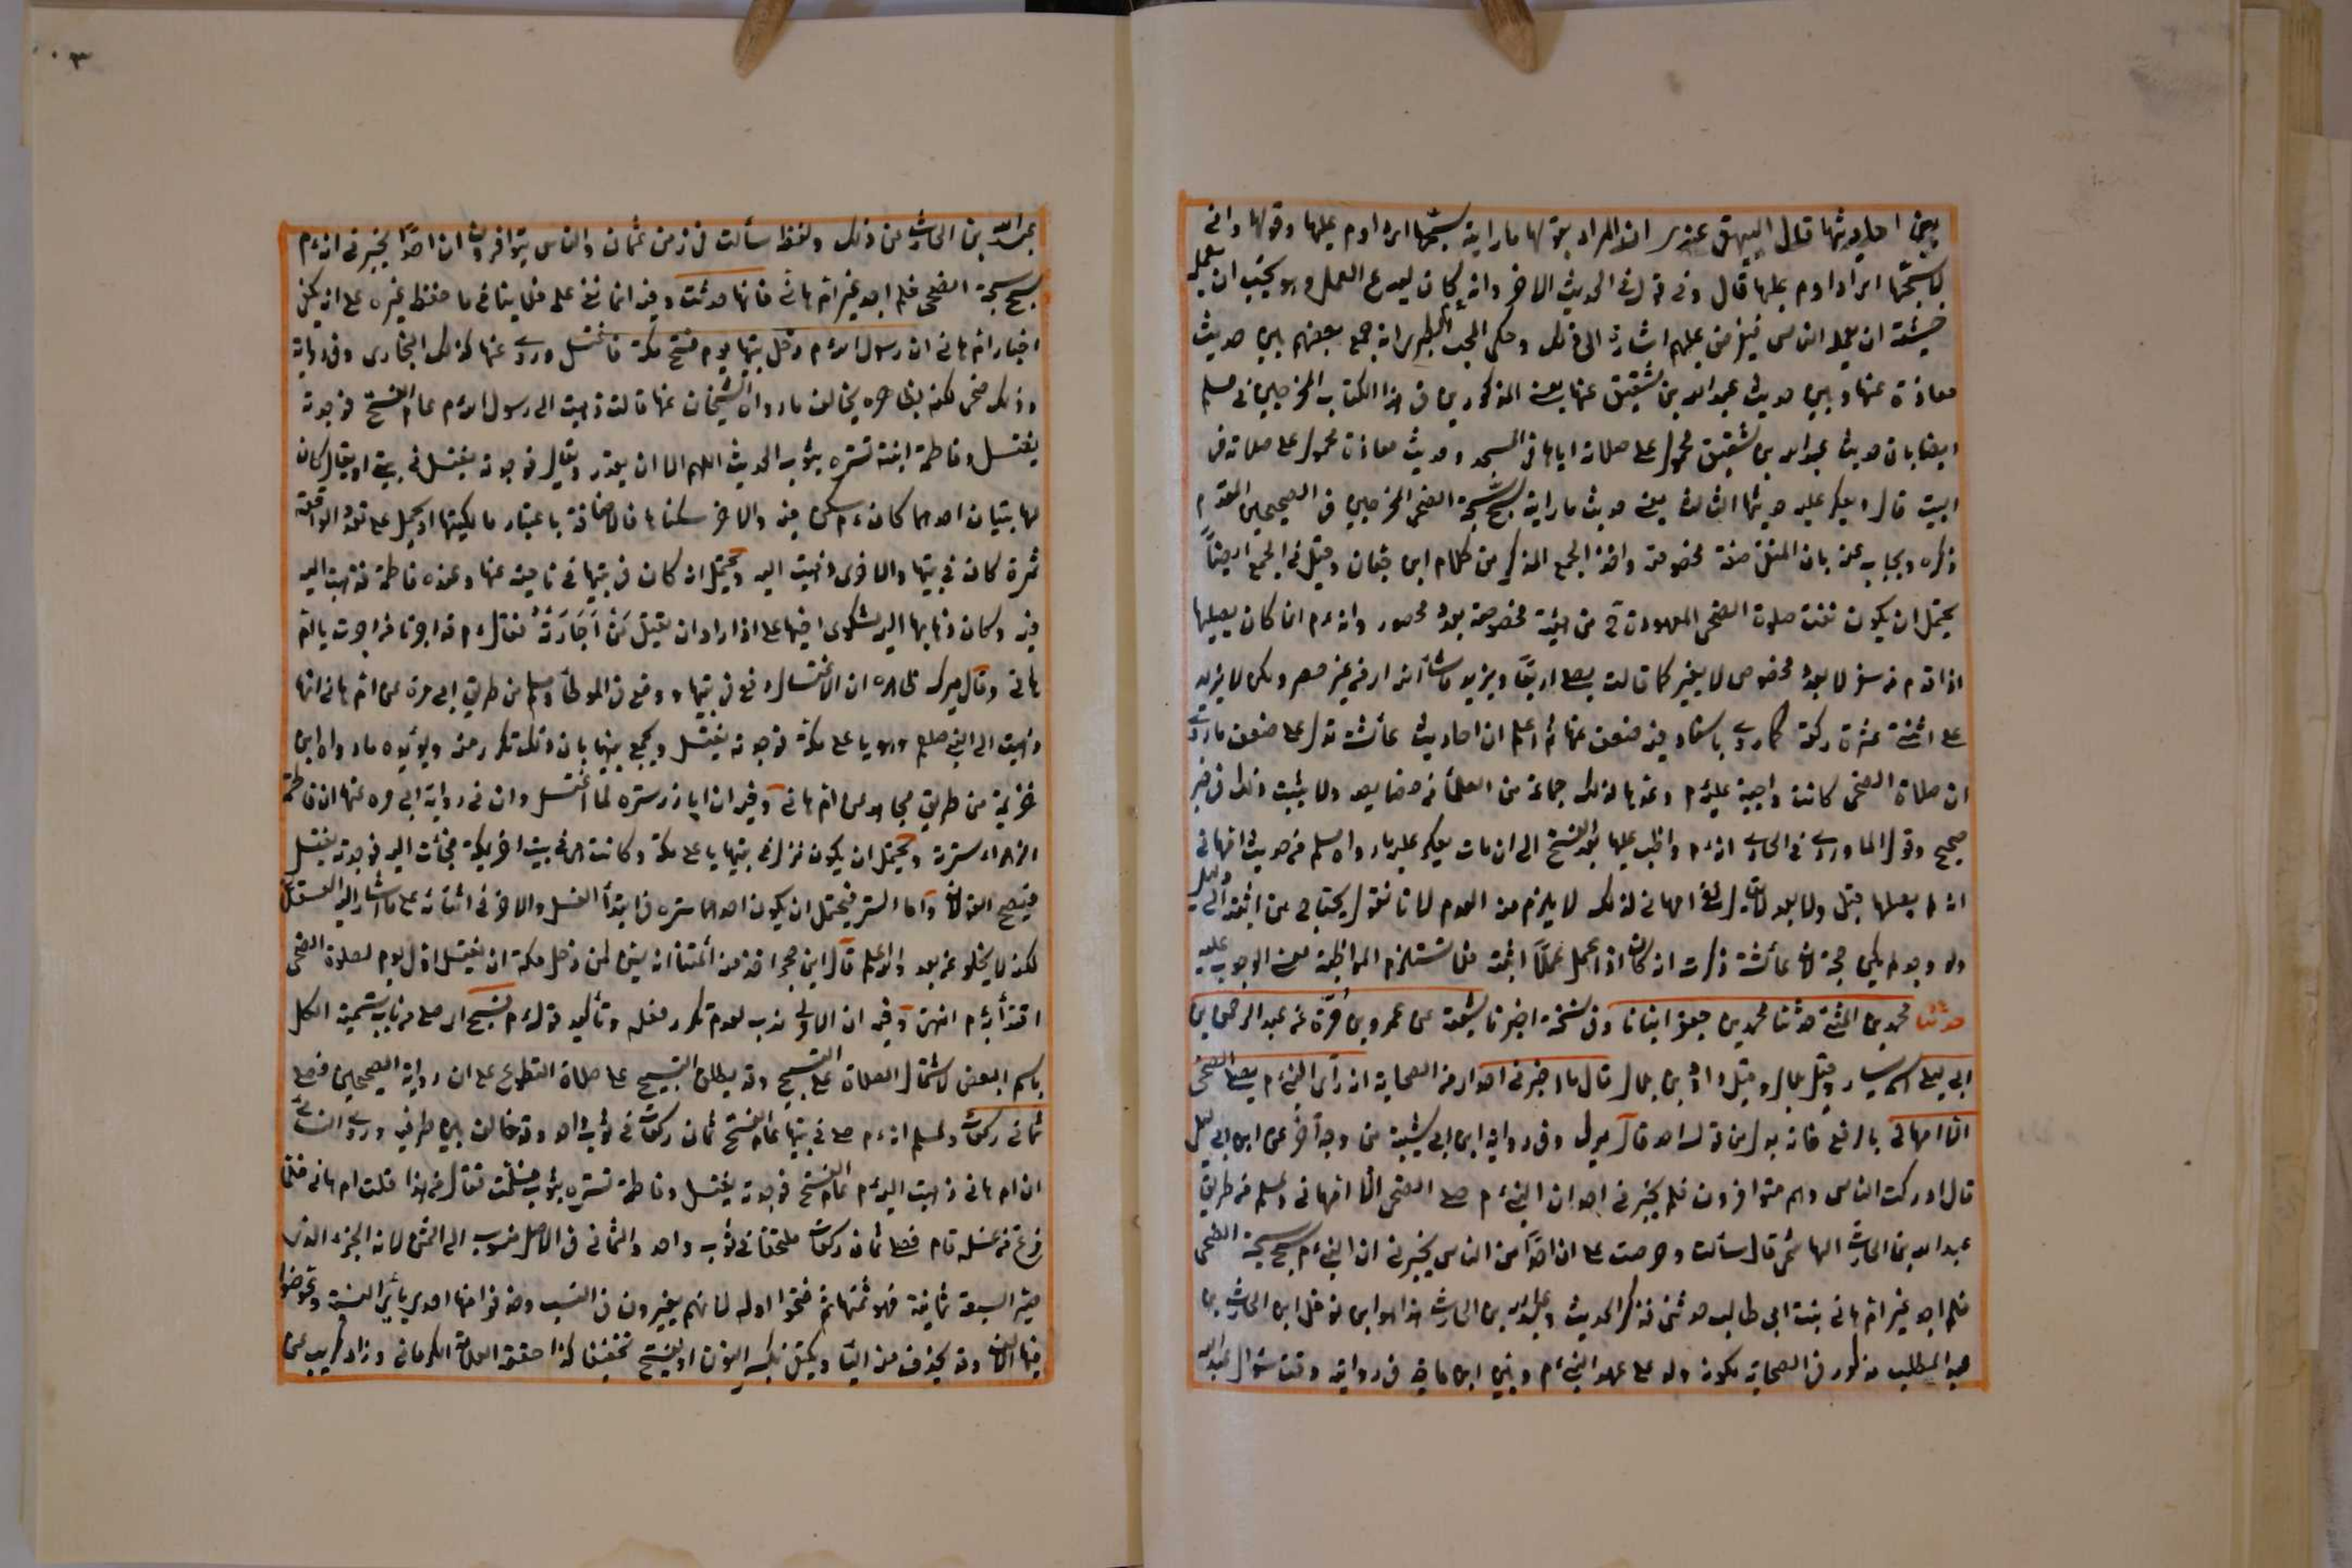 بعض احاديثها قال البيهقي عندي ان المراد بقولها ما رايته سبحها اي داوم عليها وقولها واني
لاسبحها اي اداوم عليها قال وفي قولها في الحديث الاخر وانه كان ليدع العمل وهو يحب ان يعمله
خشية ان يعمل الناس فيفرض عليهم اشارة الى ذلك وحكى المحب الطبري انه جمع بعضهم بين حديث
معاذة عنها وبين حديث عبد الله بن شقيق عنها يعني المذكورين في هذا الكتاب المخرجين في مسلم
ايضا بان حديث عبد الله بن شقيق محمول على صلاته اياها في المسجد وحديث معاذة محمول على صلاته في
البيت قال ويعكر عليه حديثها الثالث يعني حديث ما رايته سبح سبحة الضحى المخرجين في الصحيحين المتقدم
ذكره ويجاب عنه بان المنفي صفة مخصوصة واخذ الجمع المذكور من كلام ابن حبان وقيل في الجمع ايضاً
يحتمل ان يكون نفت صلوة الضحى المعهودة من هيئة مخصوصة بعدد محصور وانه ءم انما كان يصليها
اذا قدم من سفر لا بعدد مخصوص لا بغير كما قالت يصلي اربعاً ويزيد ما شاء الله اي من غير حصر ولكن لا يزيد
على اثنتي عشرة ركعة كما روى باسناد فيه ضعف عنها ثم اعلم ان احاديث عائشة تدل على ضعف ما روى
ان صلاة الضحى كانت واجبة عليه ءم وعدها لذلك جماعة من العلماء من خصايصه ولا يثبت ذلك في خبر
صحيح وقول الماوردي في الحاوي انه ءم واظب عليها بعد الفتح الى ان مات يعكر عليه ما رواه مسلم من حديث ام هاني
انه لم يصلها قبل ولا بعد لا يقال نفي ام هاني لذلك لا يلزم منه العدم لانا نقول يحتاج من اثبته الى دليل
ولو وجد لم يكن حجة لان عائشة ذكرت انه كان اذا عمل عملاً اثبته فلا تستلزم المواظبة معنى الوجوب عليه
حدثنا محمد بن المثنى حدثنا محمد بن جعفر انبانا وفي نسخة اخبرنا شعبة عن عمرو بن مُرّة عن عبد الرحمن بن
ابي ليلى اسمه يسار وقيل بلال وقيل داود بن بلال قال ما اخبرني احد اي من الصحابة انه راى النبي ءم يصلي الضحى
الا ام هاني بالرفع فانه بدل من قوله احد قال ميرك وفي رواية ابن ابي شيبة من وجه آخر عن ابن ابي ليلى
قال ادركت الناس وهم متوافرون فلم يخبرني احد ان النبي ءم صلى الضحى الا ام هاني ولمسلم من طريق
عبد الله بن الحارث الهاشمي قال سألت وحرصت على ان احداً من الناس يخبرني ان النبي ءم سبح سبحة الضحى
فلم اجد غير ام هاني بنت ابي طالب حدثتني فذكر الحديث وعبد الله بن الحارث هذا هو ابن نوفل ابن الحارث بن
عبد المطلب مذكور في الصحابة لكونه ولد على عهد النبي ءم وبين ابن ماجه في روايته وقت سؤال عبد الله
عبد الله بن الحارث عن ذلك ولفظه سألت في زمن عثمان والناس متوافرون ان احداً يخبرني انه ءم
سبح سبحة الضحى فلم اجد غير ام هاني فانها حدثت وفيه انما نفي علمه فلا ينافي ما حفظ غيره على انه يكفي
اخبار ام هاني ان رسول الله ءم دخل بيتها يوم فتح مكة فاغتسل وروي عنها كذلك البخاري وفي رواية
وذلك ضحى لكنه بظاهره يخالف ما رواه الشيخان عنها قالت ذهبت الى رسول الله ءم عام الفتح فوجدته
يغتسل وفاطمة ابنته تستره بثوب الحديث اللهم الا ان يقدر ويقال فوجدته يغتسل في بيتي او يقال كان
لها بيتان احدهما كان ءم سكن فيه والاخر سكناها فالاضافة باعتبار مالكيتها او يحمل على تعدد الواقعة
فمرة كان في بيتها والاخرى ذهبت اليه ويحتمل انه كان في بيتها في ناحية عنها وعنده فاطمة فذهبت اليه
فيه وكان ذهابها اليه لشكوى اخيها علي اذا اراد ان يقتل مَنْ اَجَارَتْهُ فقال ءم قد اجرنا من اجرت يا ام
هاني وقال ميرك ظاهره ان الاغتسال وقع في بيتها ووقع في الموطأ ومسلم من طريق ابي مرة عن ام هاني انها
ذهبت الى النبي صلعم وهو باعلى مكة فوجدته يغتسل ويجمع بينهما بان ذلك تكرر منه ويؤيده ما رواه ابن
خزيمة من طريق مجاهد عن ام هاني وفيه ان ابا ذر ستره لما اغتسل وان في رواية ابي مرة عنها ان فاطمة
الزهراء سترته ويحتمل ان يكون نزل في بيتها باعلى مكة وكانت هي في بيت اخر بمكة فجاءت اليه فوجدته يغتسل
فيصح القولان واما الستر فيحتمل ان يكون احدهما ستره في ابتدأ الغسل والاخر في اثنائه على ما اشار اليه العسقلاني
لكنه لا يخلو عن بعد والله اعلم قال ابن حجر اخذ منه أئمتنا انه يسن لمن دخل مكة ان يغتسل اول يوم لصلوة الضحى
اقتدأ به ءم انتهى وفيه ان الاولى ندب لعدم تكرر فعله وتأكيد قوله ءم فسبح اي صلى من باب تسمية الكل
باسم البعض لاشتمال الصلاة على التسبيح وقد يطلق التسبيح على صلاة التطوع على ان رواية الصحيحين فصلى
ثماني ركعات ولمسلم انه ءم صلى في بيتها عام الفتح ثمان ركعات في ثوب واحد وقد خالف بين طرفيه وروى النسائي
ان ام هاني ذهبت اليه ءم عام الفتح فوجدته يغتسل وفاطمة تستره بثوب فسلمت فقال من هذا قلت ام هاني فلما
فرغ من غسله قام فصلى ثمان ركعات ملتحفا في ثوب واحد والثماني في الاصل منسوب الى الثمن لانه الجزء الذي
صير السبعة ثمانية فهو ثمنها ثم فتحوا اوله لانهم يغيرون في النسب وحذفوا منها احدى يائي النسبة وعوضوا
منها الالف وقد يحذف منه الياء ويكتفى بكسر النون او يفتح تخفيفا كذا حققه العلامة الكرماني وزاد كريب عن